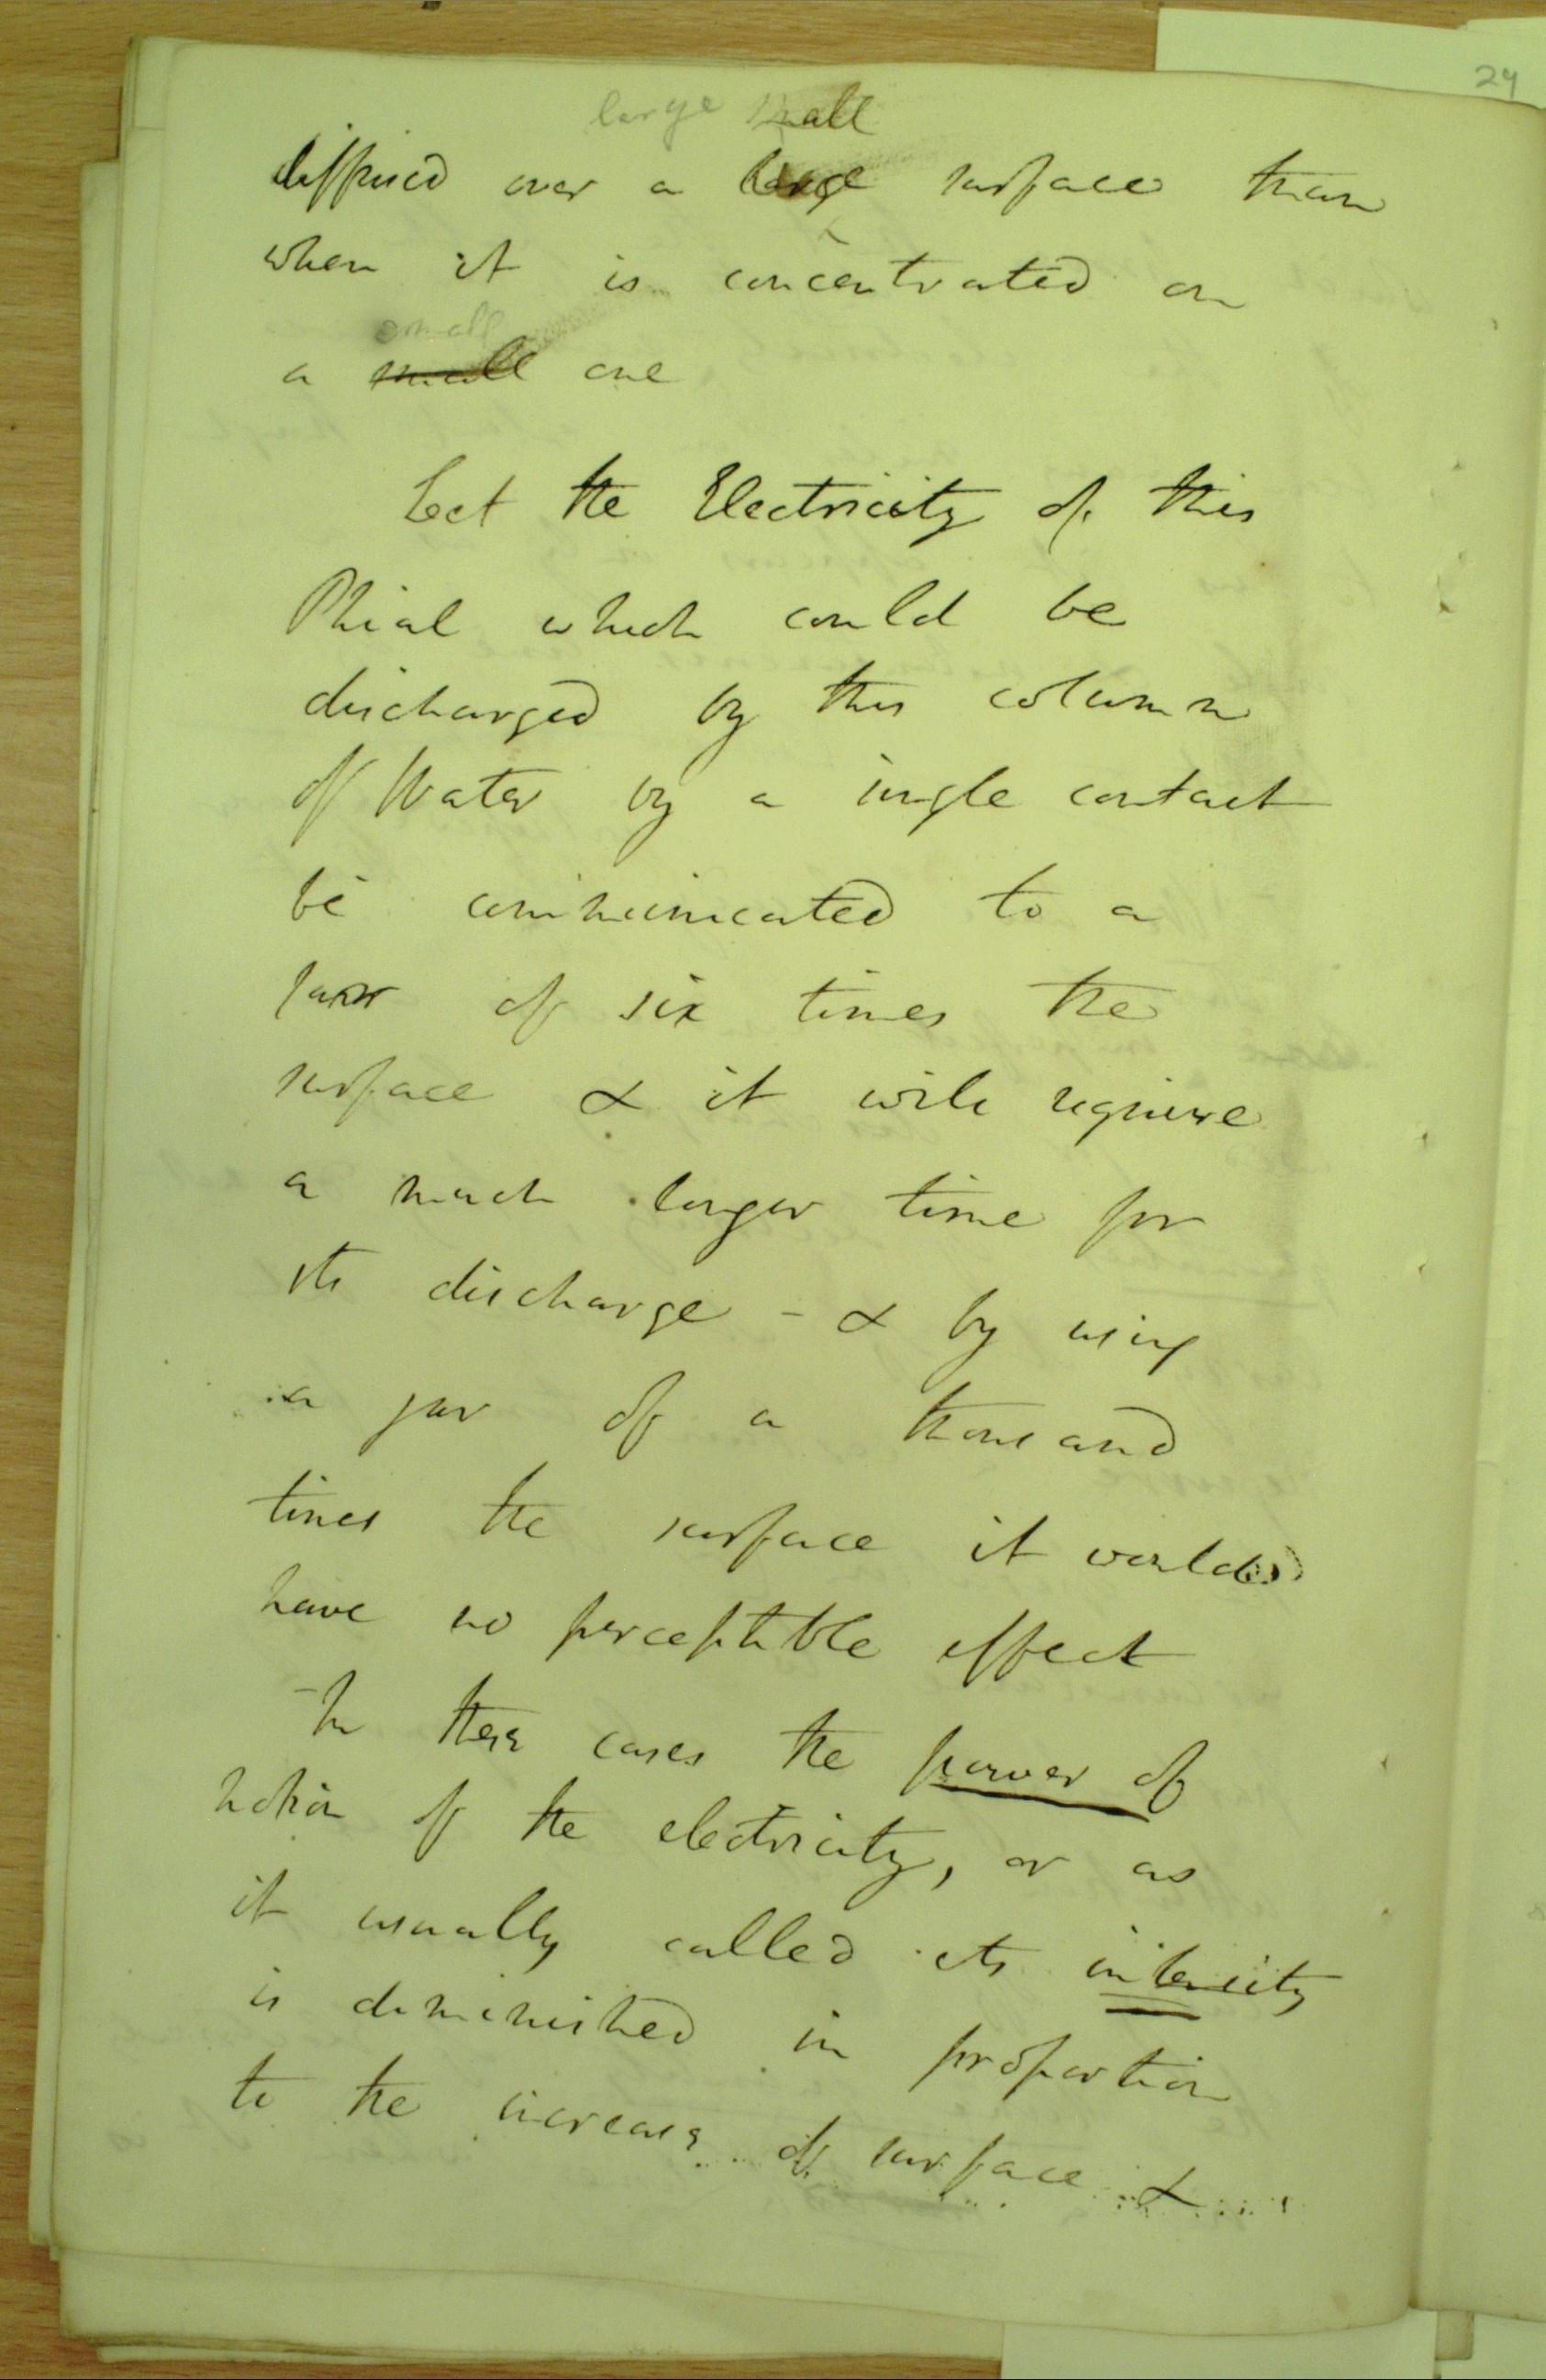 24
large small
diffused over a large surface than
when it is concentrated on
small
a small one
Let the Electricity of this
Phial which could be
discharged by this column
of Water by a single contact
be communicated to a
jar of six times the
surface & it will require
a much longer time for
its discharge - & by using
a jar of a thousand
times the surface it would
have no perceptible effect
- In these cases the power of
motion of the electricity, or as
it usually called its intensity
is diminished in proportion
to the increase of surface &